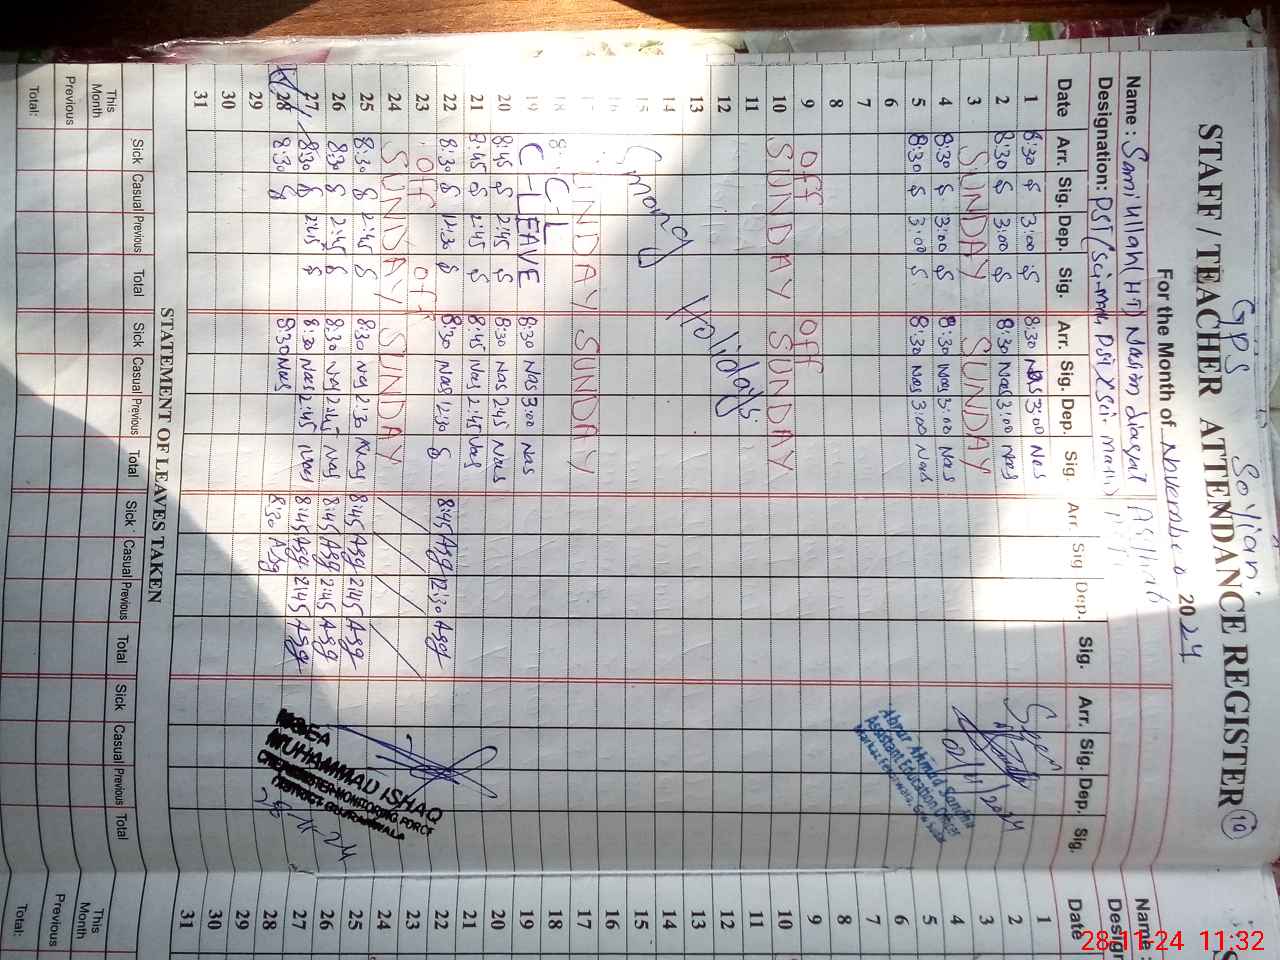 GPS Soyian
STAFF / TEACHER ATTENDANCE REGISTER 10
For the Month of November 2024
Name : Sami Ullah (HT) Nasim
Designation: PST
Date Arr. Sig. Dep. Sig. Arr. Sig. Dep. Sig. Arr. Sig Dep. Sig. Arr. Sig. Dep. Sig.
1 8:30 3:00 8:30 Nas 3:00 Nas
2 8:30 3:00 8:30 Nas 3:00 Nas
3 SUNDAY SUNDAY
4 8:30 3:00 8:30 Nas 3:00 Nas
5 8:30 3:00 8:30 Nas 3:00 Nas
6
7
8
9 Off Off
10 SUNDAY SUNDAY
11
12
13
14
15
16
Smong Holidays
17 SUNDAY SUNDAY
18
19 C-LEAVE 8:30 Nas 3:00 Nas
20 8:45 2:45 8:30 Nas 2:45 Nas
21 8:45 2:45 8:45 Nas 2:45 Nas
22 8:30 12:30 8:30 Nas 12:30 8:45 Agg 12:30 Agg
23 Off Off
24 SUNDAY SUNDAY
25 8:30 2:45 8:30 Nas 2:30 Nas 8:45 Agg 2:45 Agg
26 8:30 2:45 8:30 Nas 2:45 Nas 8:45 Agg 2:45 Agg
27 8:30 2:45 8:30 Nas 2:45 Nas 8:45 Agg 2:45 Agg
28 8:30 8:30 Nas 8:30 Agg
29
30
31
Seen
01/11/2024
Abrar Ahmad Sandhu
Assistant Education Officer
MEA
MUHAMMAD ISHAQ
CHIEF MINISTER MONITORING FORCE
DISTRICT GUJRANWALA
28-11-24
STATEMENT OF LEAVES TAKEN
Sick Casual Previous Total Sick Casual Previous Total Sick Casual Previous Total Sick Casual Previous Total
This Month
Previous
Total:
Name :
Design
Date
1
2
3
4
5
6
7
8
9
10
11
12
13
14
15
16
17
18
19
20
21
22
23
24
25
26
27
28
29
30
31
This Month
Previous
Total:
28-11-24 11:32